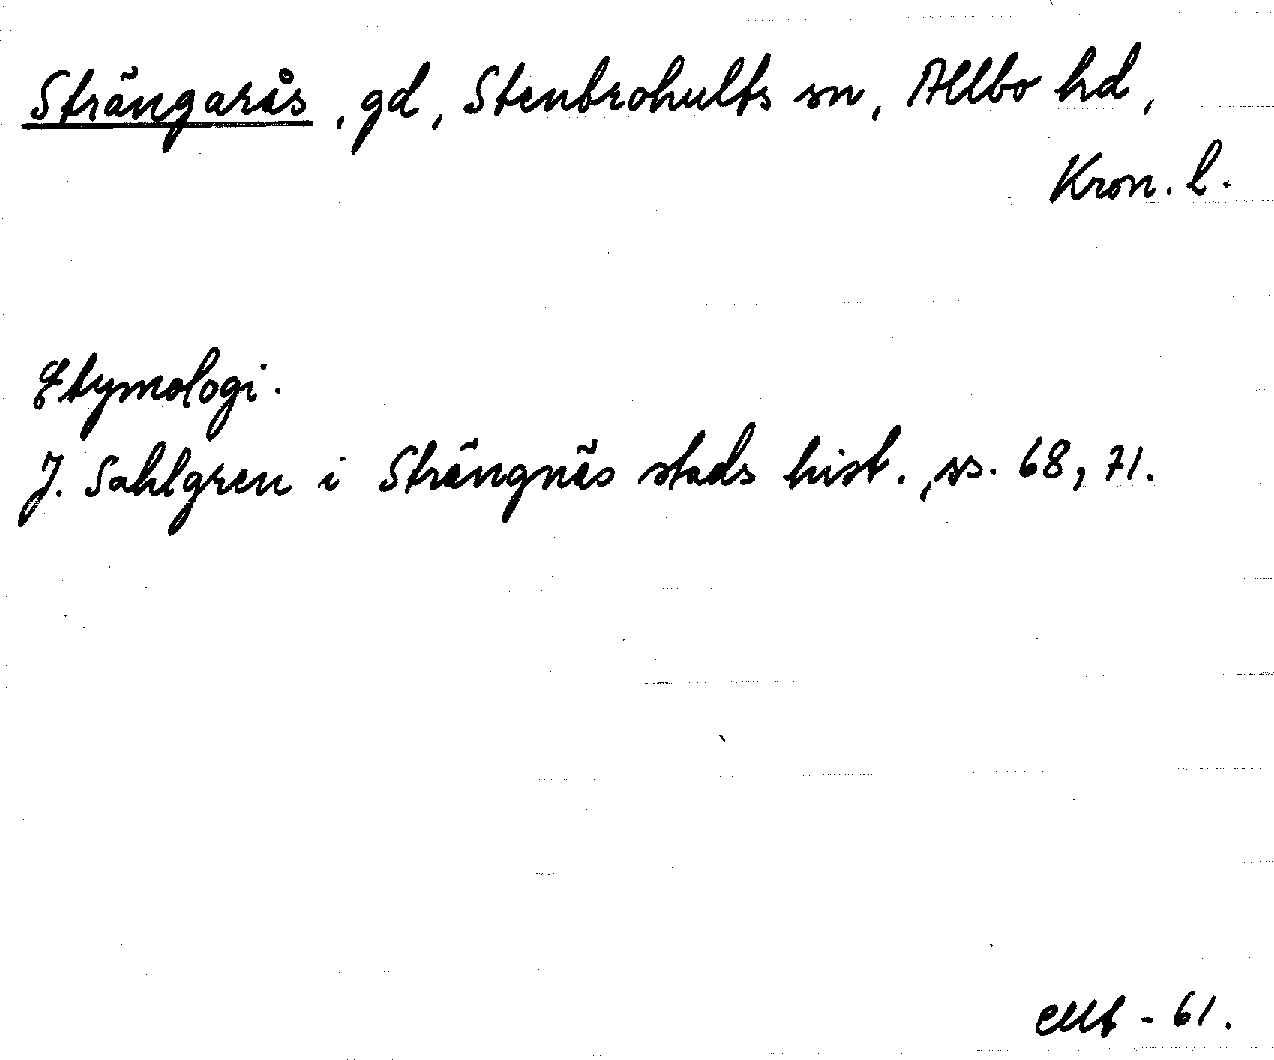 Strängarås, gd, Stenbrohults sn, Allbo hd,
Kron. l.
Etymologi.
J. Sahlgren i Strängnäs stads hist., ss. 68, 71.
- 61.